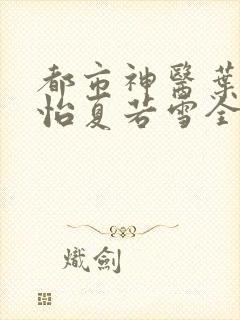 都市神醫葉
怡夏若雪全
熾劍